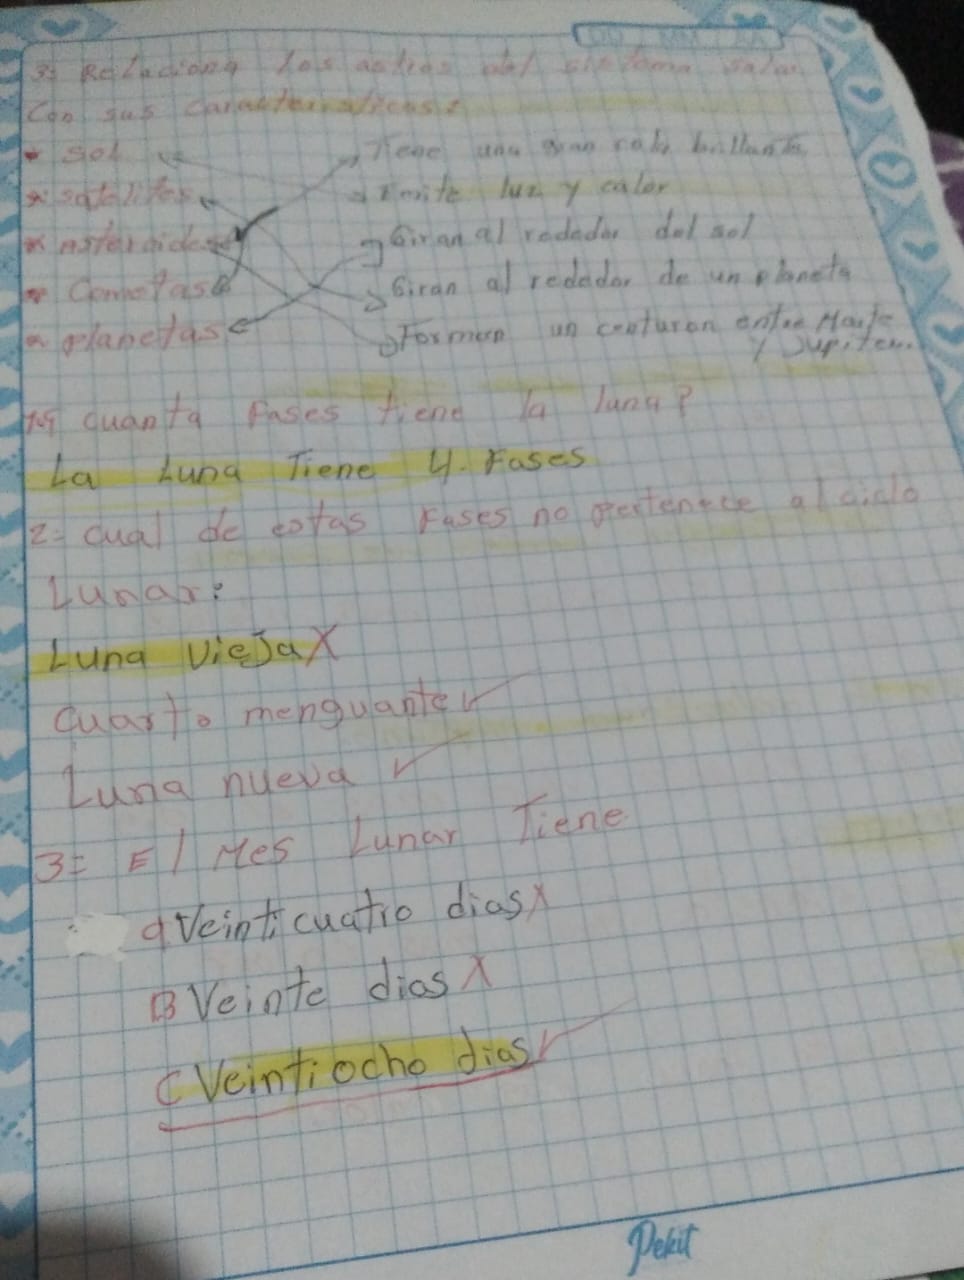 3= Relaciona los astros del sistema solar
Con sus caracteristicas:
* Sol Tiene una gran cola brillante
* satelites Emite luz y calor
* Asteroides Giran al rededor del sol
* Cometas Giran al rededor de un planeta
* planetas Forman un cinturon entre Marte
y Jupiter.
cuanta Fases tiene la luna?
La Luna Tiene 4. Fases
2= cual de estas Fases no pertenece al ciclo
Lunar:
Luna vieja X
cuarto menguante ✓
Luna nueva ✓
3= El Mes Lunar Tiene
a Veinticuatro dias X
B Veinte dias X
C Veintiocho dias ✓
Pekit